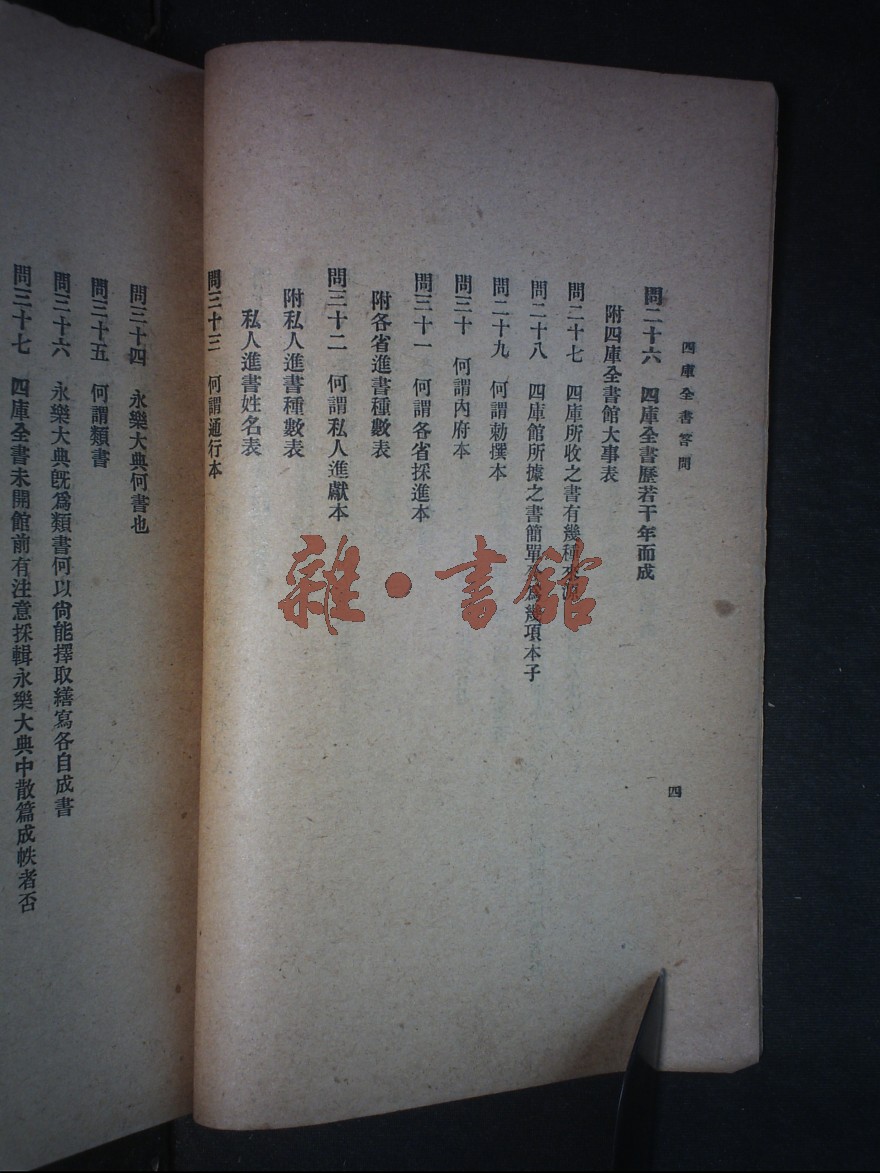 四庫全書答問
四
問二十六　四庫全書歷若干年而成
附四庫全書館大事表
問二十七　四庫所收之書有幾種來源
問二十八　四庫館所據之書簡單
幾項本子
問二十九　何謂勅撰本
問三十　何謂內府本
問三十一　何謂各省採進本
附各省進書種數表
問三十二　何謂私人進獻本
附私人進書種數表
私人進書姓名表
問三十三　何謂通行本
問三十四　永樂大典何書也
問三十五　何謂類書
問三十六　永樂大典旣爲類書何以尙能擇取繕寫各自成書
問三十七　四庫全書未開館前有注意採輯永樂大典中散篇成帙者否
雜·書館